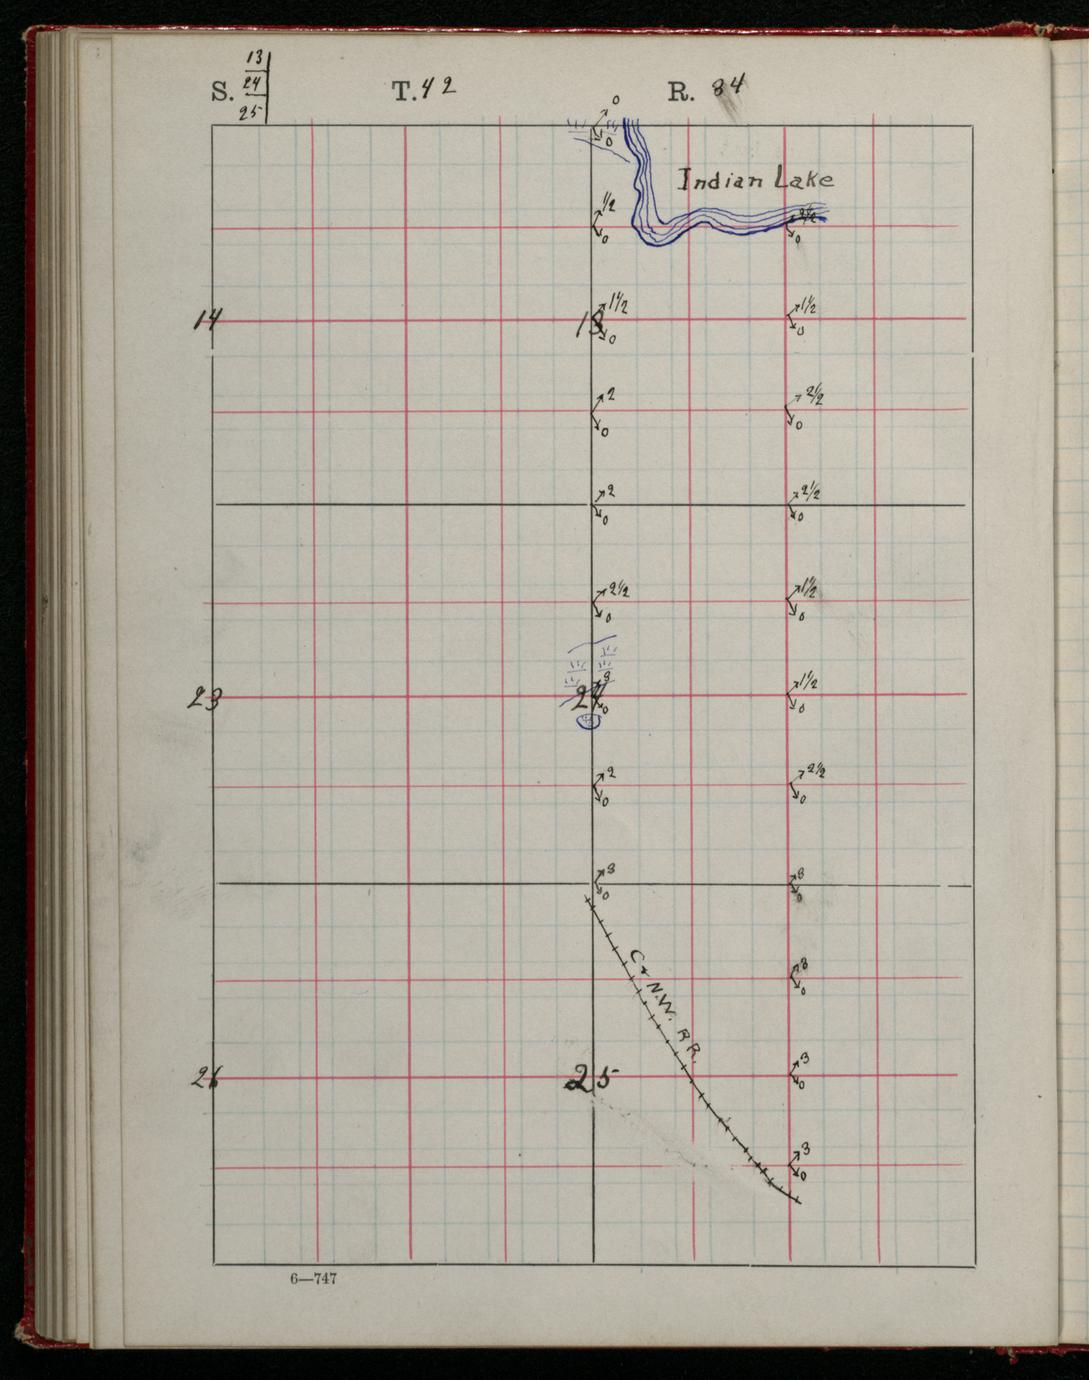 S. 13 24 25 T. 42 R. 84
0
0
Indian Lake
1/2 2 1/2
0 0
14 13 1 1/2 1 1/2
0 0
2 2 1/2
0 0
2 2 1/2
0 0
2 1/2 1 1/2
0 0
23 24 3 1 1/2
0 0
2 2 1/2
0 0
3 3
0 0
C & N.W. R R.
3
0
26 25 3
0
3
0
6—747